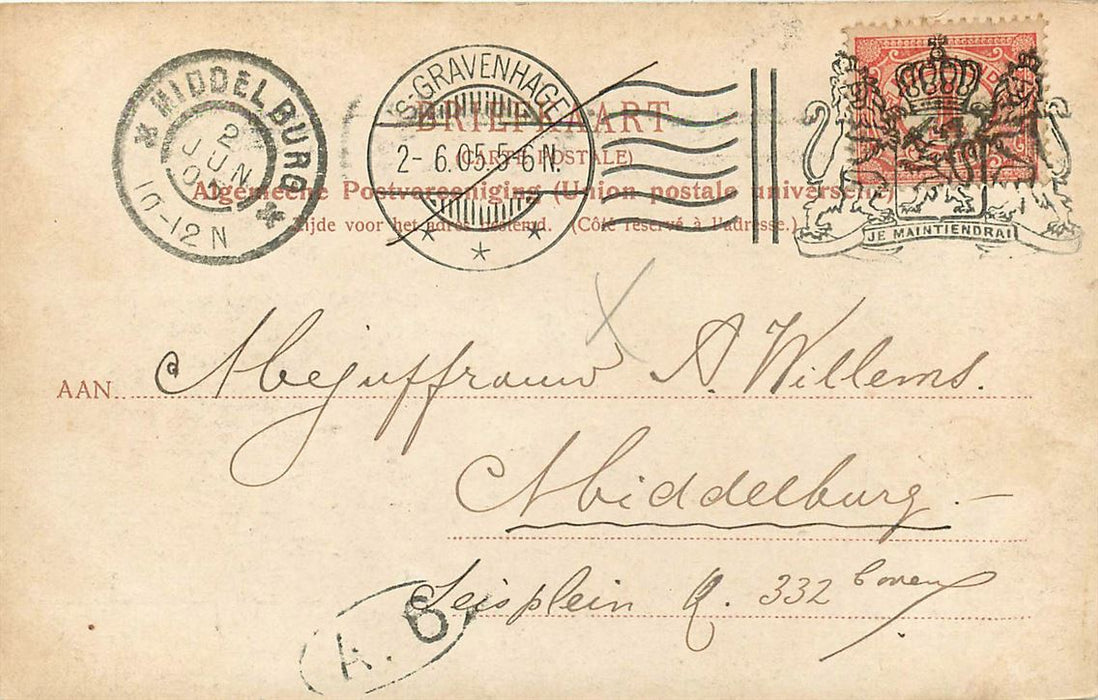 MIDDELBURG
2
JUN
05
10-12 N
'S-GRAVENHAGE
2- 6.05.5-6N.
BRIEFKAART
(CARTE POSTALE)
Algemeene Postvereeniging (Union postale universelle)
Zijde voor het adres bestemd. (Côté réservé à l'adresse.)
1
JE MAINTIENDRAI
AAN Mejuffrouw A. Willems.
Middelburg.—
Seisplein Q. 332 boven
A. 6